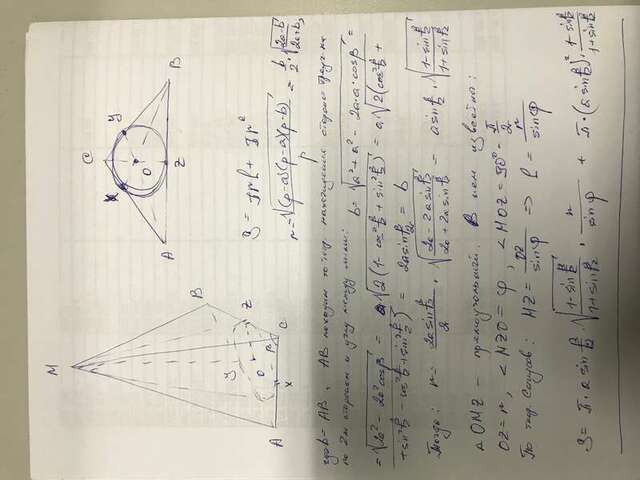 M
A
B
C
O
X
Y
Z
r
A
B
C
O
Y
Z
S = πrl + πr²
r = √((p-a)(p-a)(p-b)/p) = b/2 · √((2a-b)/(2a+b)),
где b = AB. AB находим по теор. нахождения стороны
по 2м сторонам и углу между ними: b = √(a² + a² - 2a·a·cosβ) =
= √(2a² - 2a²cosβ) = a√(2(1 - cos²β/2 + sin²β/2)) = a·√(2(cos²β/2 +
+ sin²β/2 - cos²β/2 + sin²β/2)) = 2a sin β/2 = b
Тогда: r = (2a sin β/2)/2 · √((2a - 2a sin β/2)/(2a + 2a sin β/2)) = a sin β/2 · √((1 - sin β/2)/(1 + sin β/2))
△OMZ - прямоугольный. В нем известно:
OZ = r, <MZO = φ, <MOZ = 90° = π/2
По теор. Синусов: MZ = OZ/sinφ => l = r/sinφ
S = π·a sin β/2 · √((1 - sin β/2)/(1 + sin β/2)) · r/sinφ + π·(a sin β/2)² · (1 - sin β/2)/(1 + sin β/2)